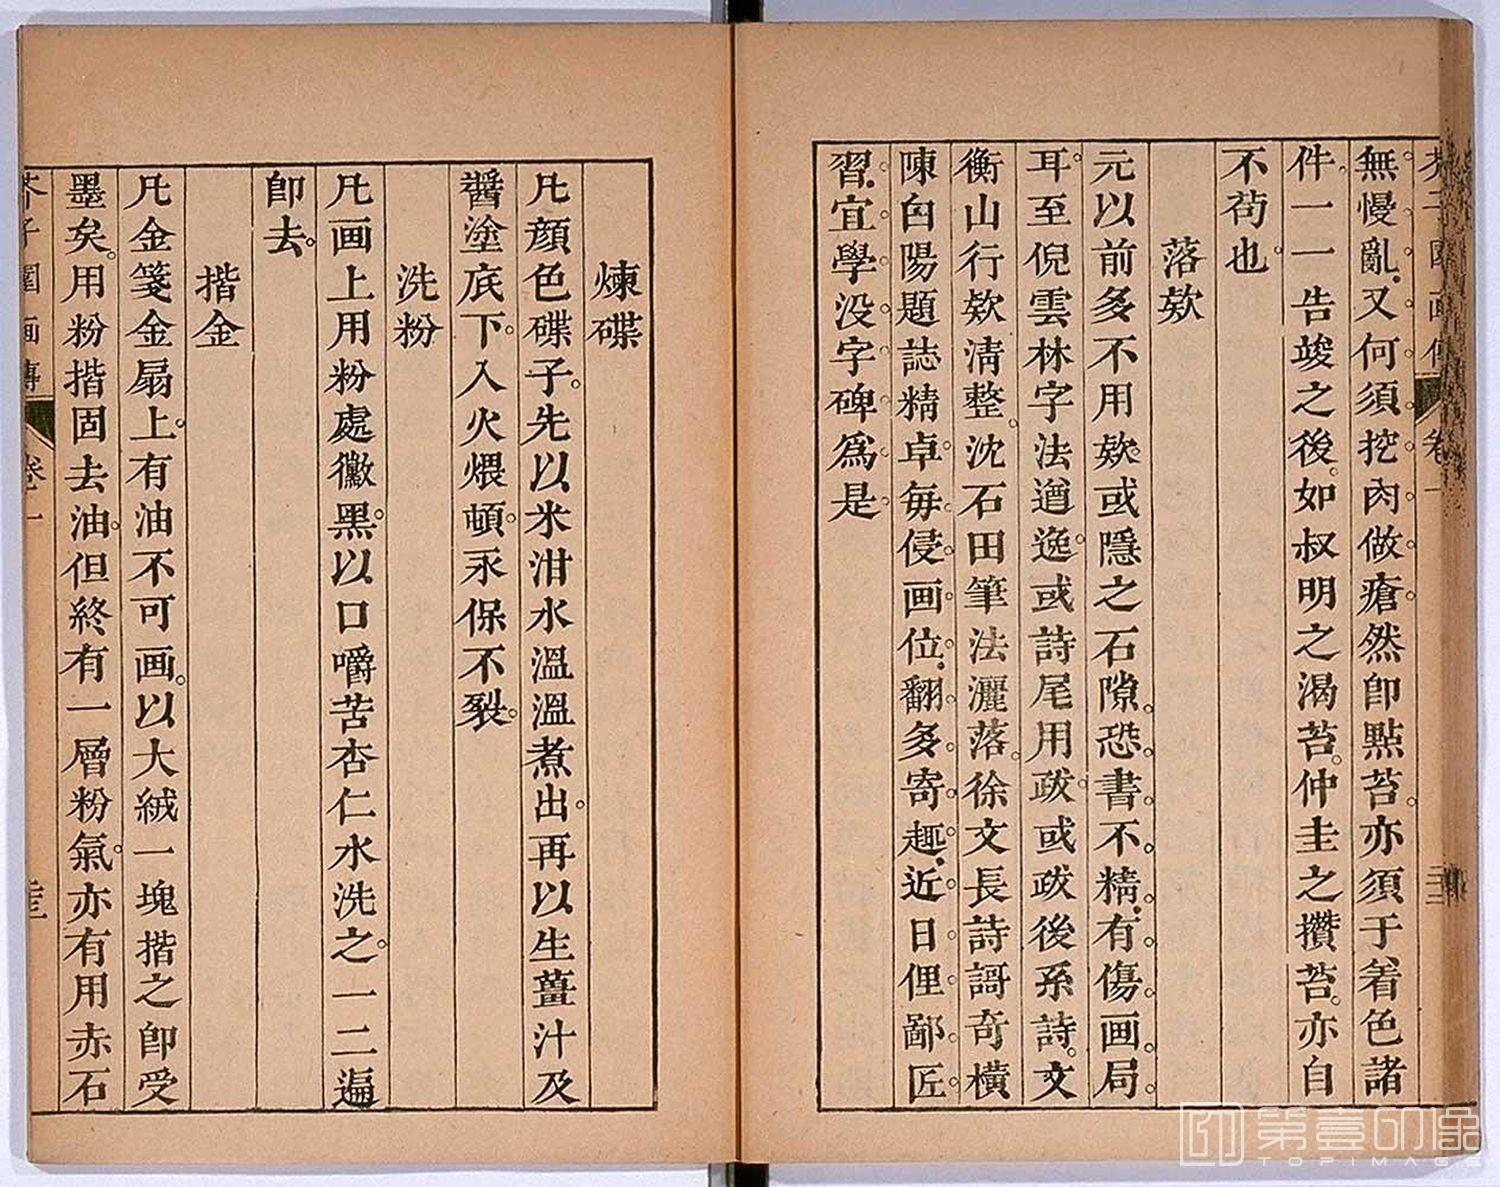 芥子園画傳 卷一
無慢亂又何須挖肉做瘡然卽點苔亦須于着色諸
件一一告竣之後如叔明之渴苔仲圭之攢苔亦自
不苟也
落欵
元以前多不用欵或隱之石隙恐書不精有傷画局
耳至倪雲林字法遒逸或詩尾用跋或跋後系詩文
衡山行欵淸整沈石田筆法灑落徐文長詩謌奇橫
陳白陽題誌精卓每侵画位翻多寄趣近日俚鄙匠
習宜學没字碑爲是
煉碟
凡顏色碟子先以米泔水溫溫煮出再以生薑汁及
醬塗底下入火煨頓永保不裂
洗粉
凡画上用粉處黴黑以口嚼苦杏仁水洗之一二遍
卽去
揩金
凡金箋金扇上有油不可画以大絨一塊揩之卽受
墨矣用粉揩固去油但終有一層粉氣亦有用赤石
芥子園画傳 卷一
第壹印像
TOPIMAGE